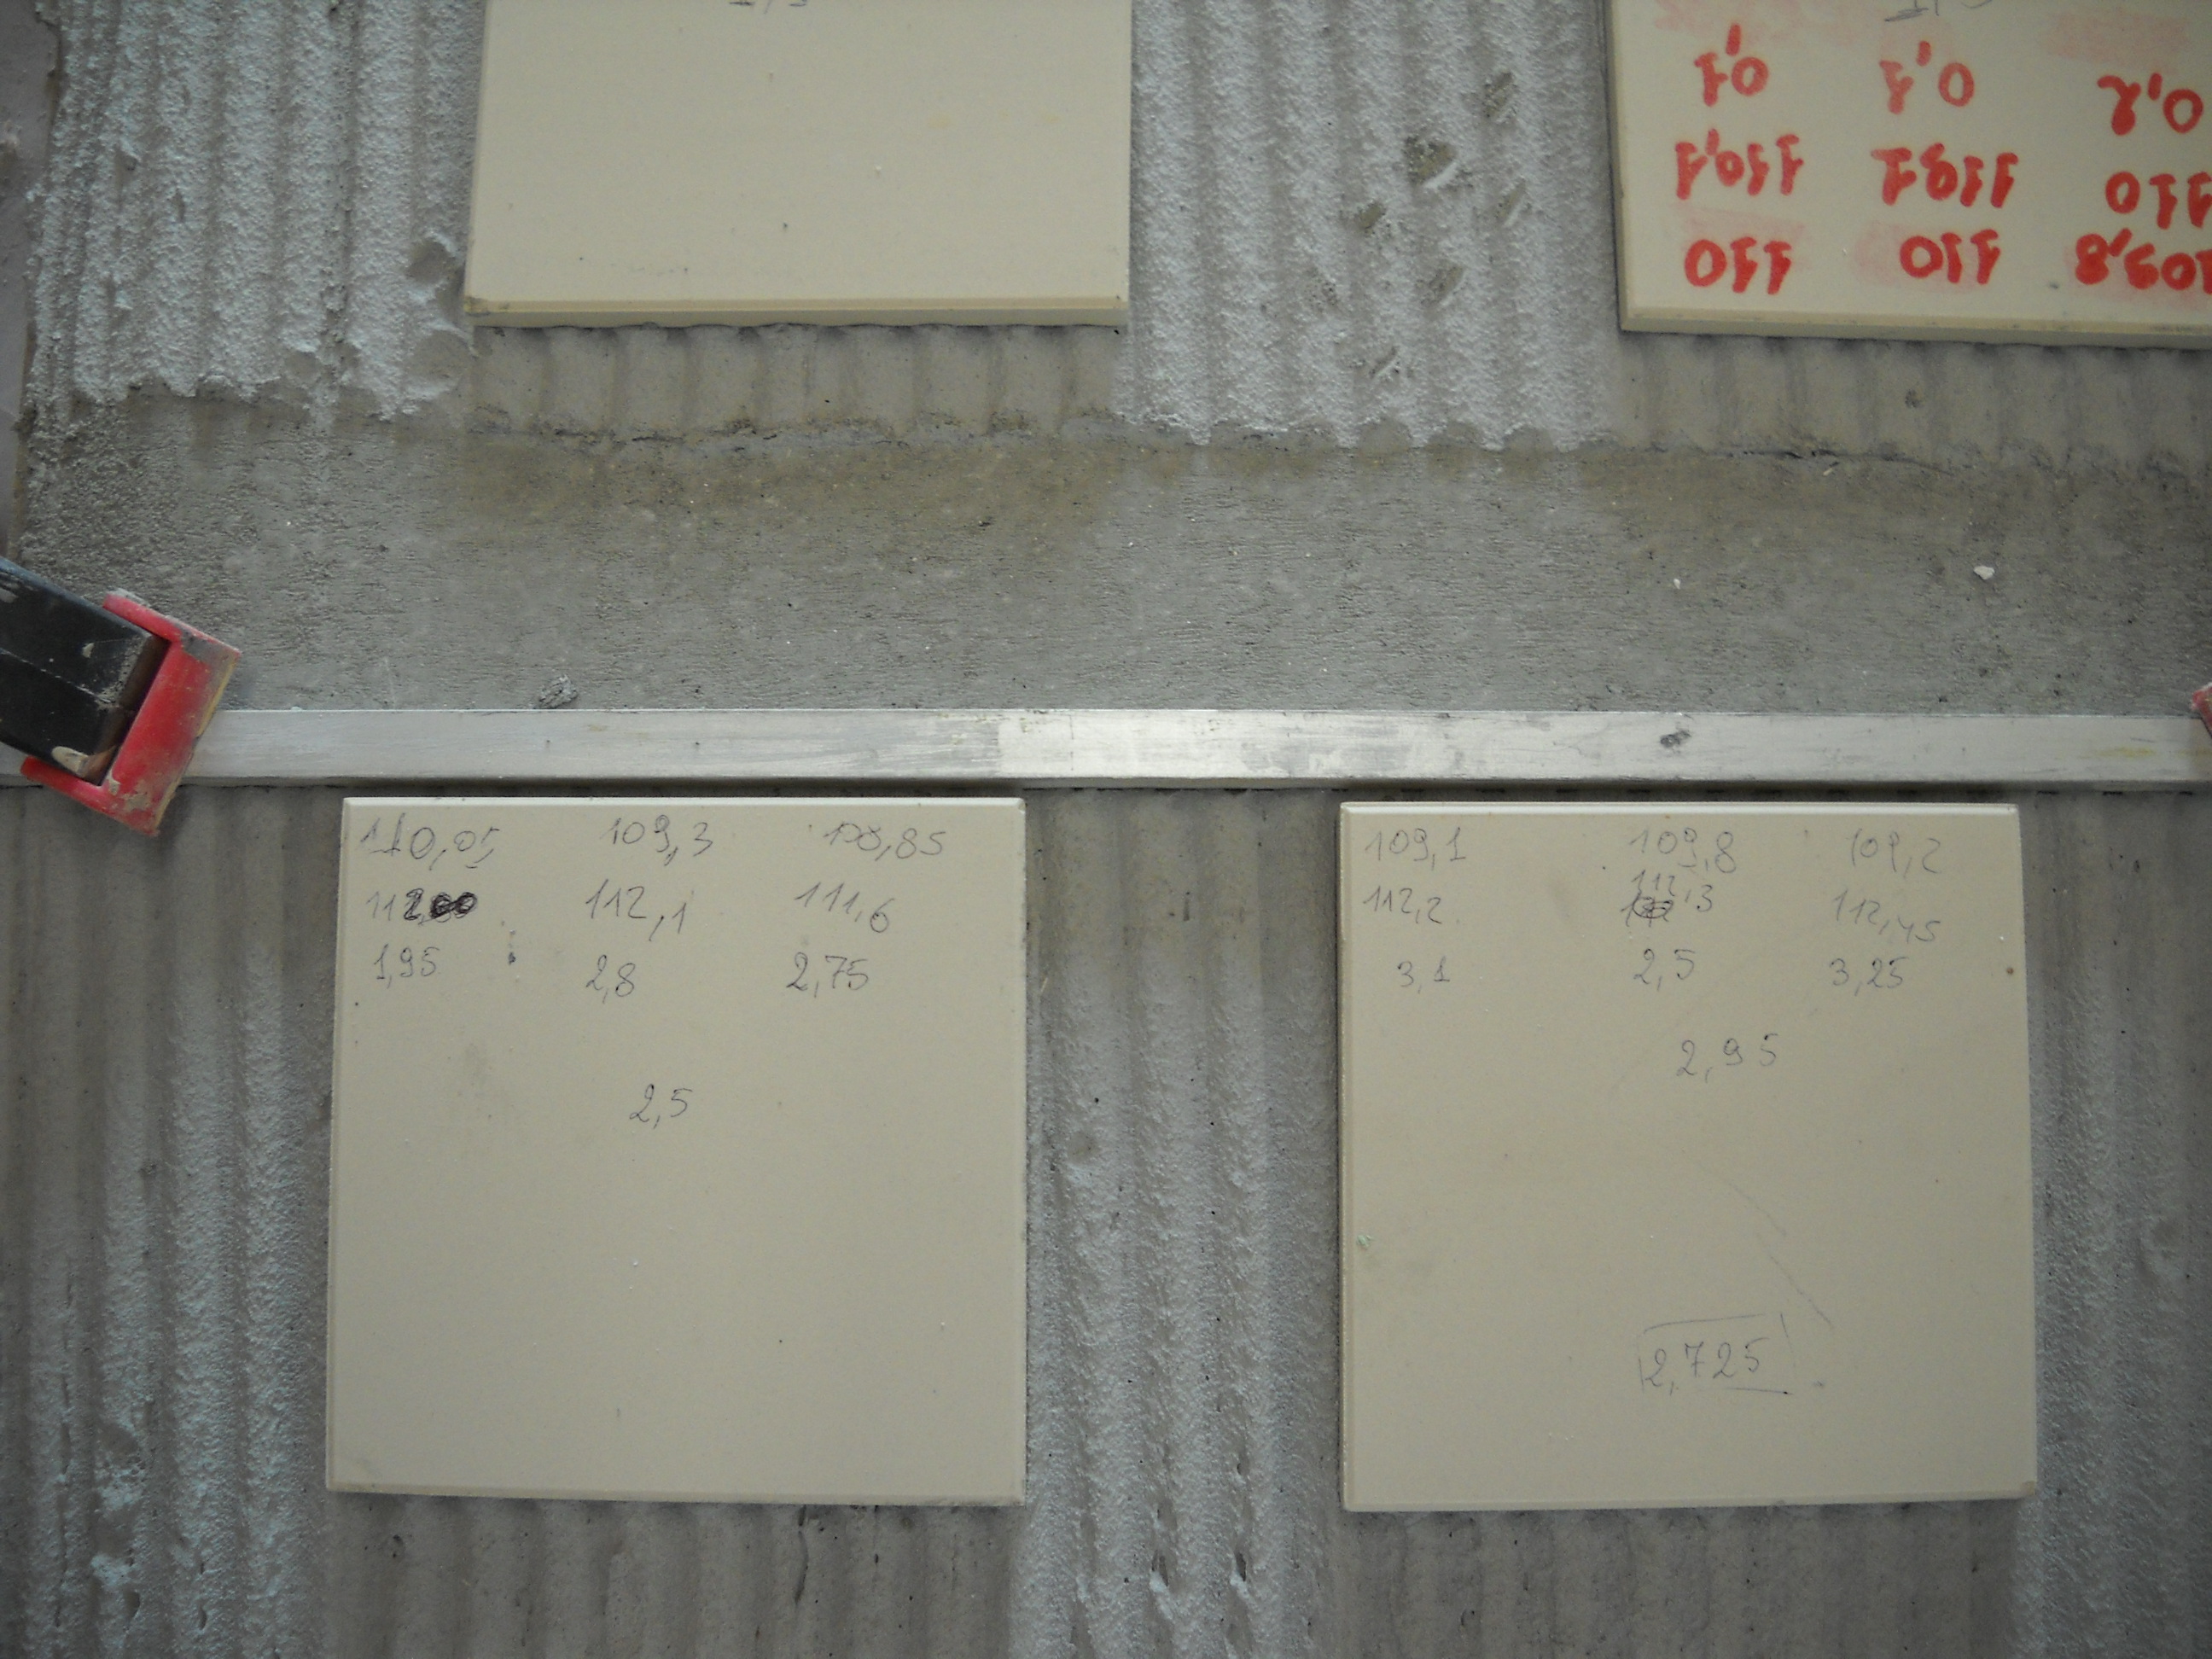 0,1 0,1 0,2
110,1 110,1 110
110 110 109,8
110,05 109,3 108,85
112,00 112,1 111,6
1,95 2,8 2,75
2,5
109,1 109,8 109,2
112,2 112,3 112,45
3,1 2,5 3,25
2,95
2,725